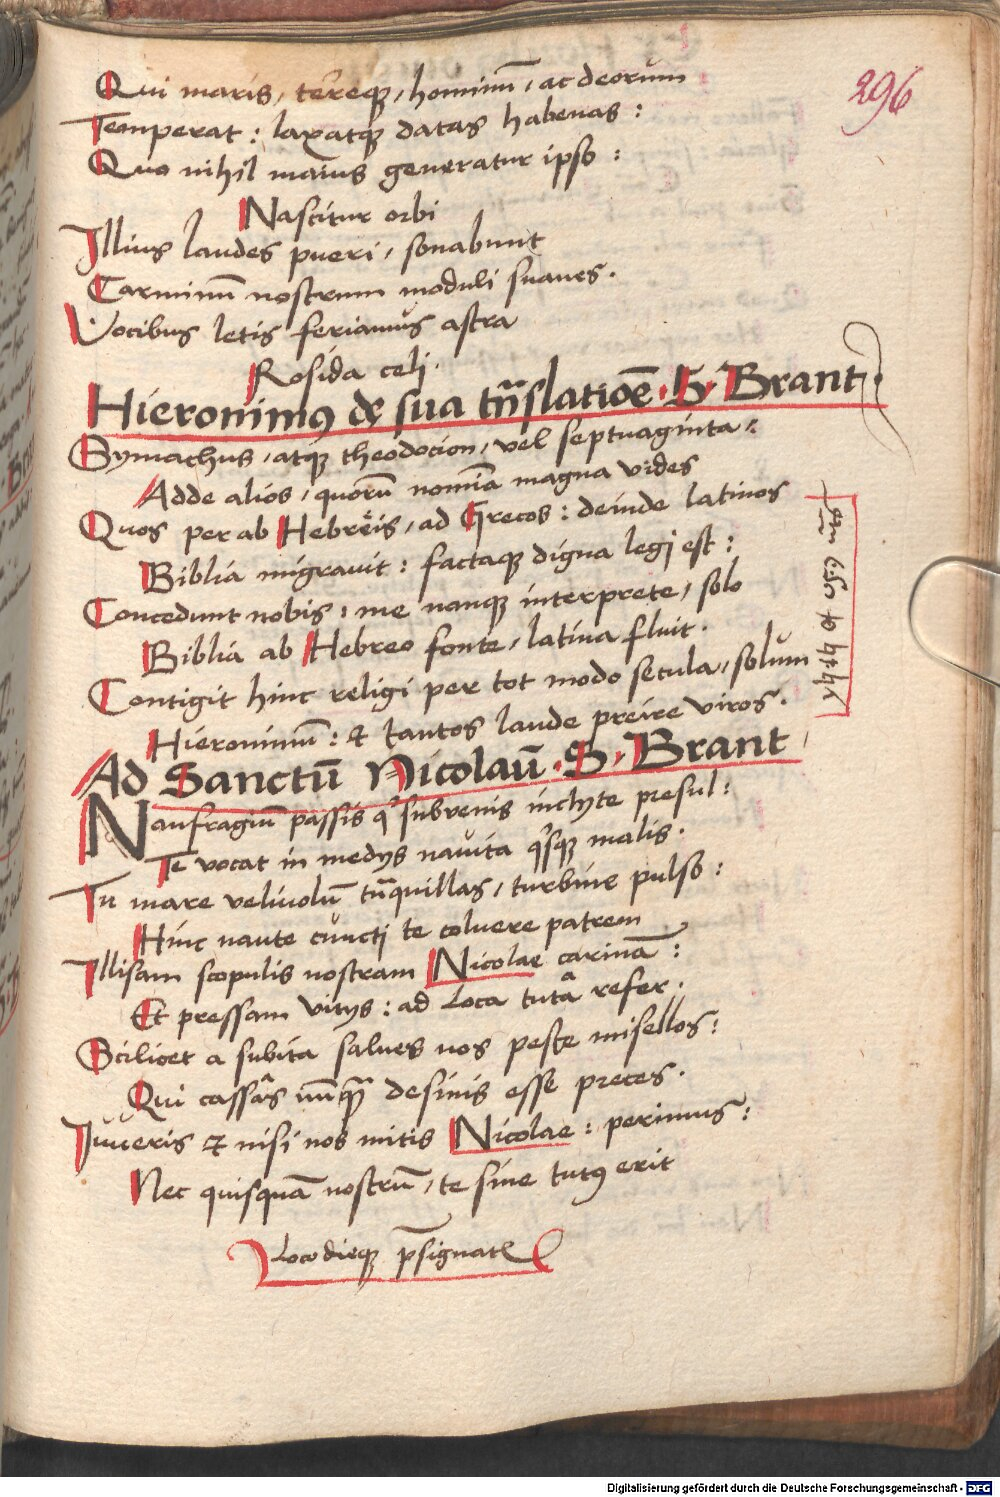 296
Qui maris, terreq́ꝫ, hominū, ac deorum
Temperat : laxatqꝫ datas habenas :
Quo nihil maius generatur ipso :
Nascitur orbi
Illius laudes pueri, sonabunt
Carminū nostrum moduli suaues.
Vocibus letis feriamus astra
Rosida celi.
Hieronimꝰ de sua tr̄nslatiōe. S. Brant.
Symachus, atqꝫ theodocion, vel septuaginta :
Adde alios, quorū nomīa magna vides
Quos per ab Hebreis, ad Grecos : deinde latinos
Biblia migrauit : factaqꝫ digna legi est :
Concedunt nobis, me nanqꝫ interprete, solo
Biblia ab Hebreo fonte, latina fluit.
Contigit hinc religi per tot modo secula, solum
Hieronimū : et tantos laude preire viros.
Ad Sanctū Nicolaū. S. Brant
Naufragiū passis qͥ subvenis inclyte presul :
Te vocat in medijs navita qͥsqꝫ malis.
Tu mare velivolū tr̄nquillas, turbine pulso :
Hinc naute cuncti te coluere patrem
Illisam scopulis nostram Nicolae carinā :
Et pressam vitijs : ad loca tuta refer.
Scilicet a subita salues nos peste misellos :
Qui cassas nūqꝫ desinis esse preces.
Iuueris et nisi nos mitis Nicolae : perimus :
Nec quisquā nostrū, te sine tutꝰ erit
Loco dieqꝫ p̄signat
Digitalisierung gefördert durch die Deutsche Forschungsgemeinschaft - DFG